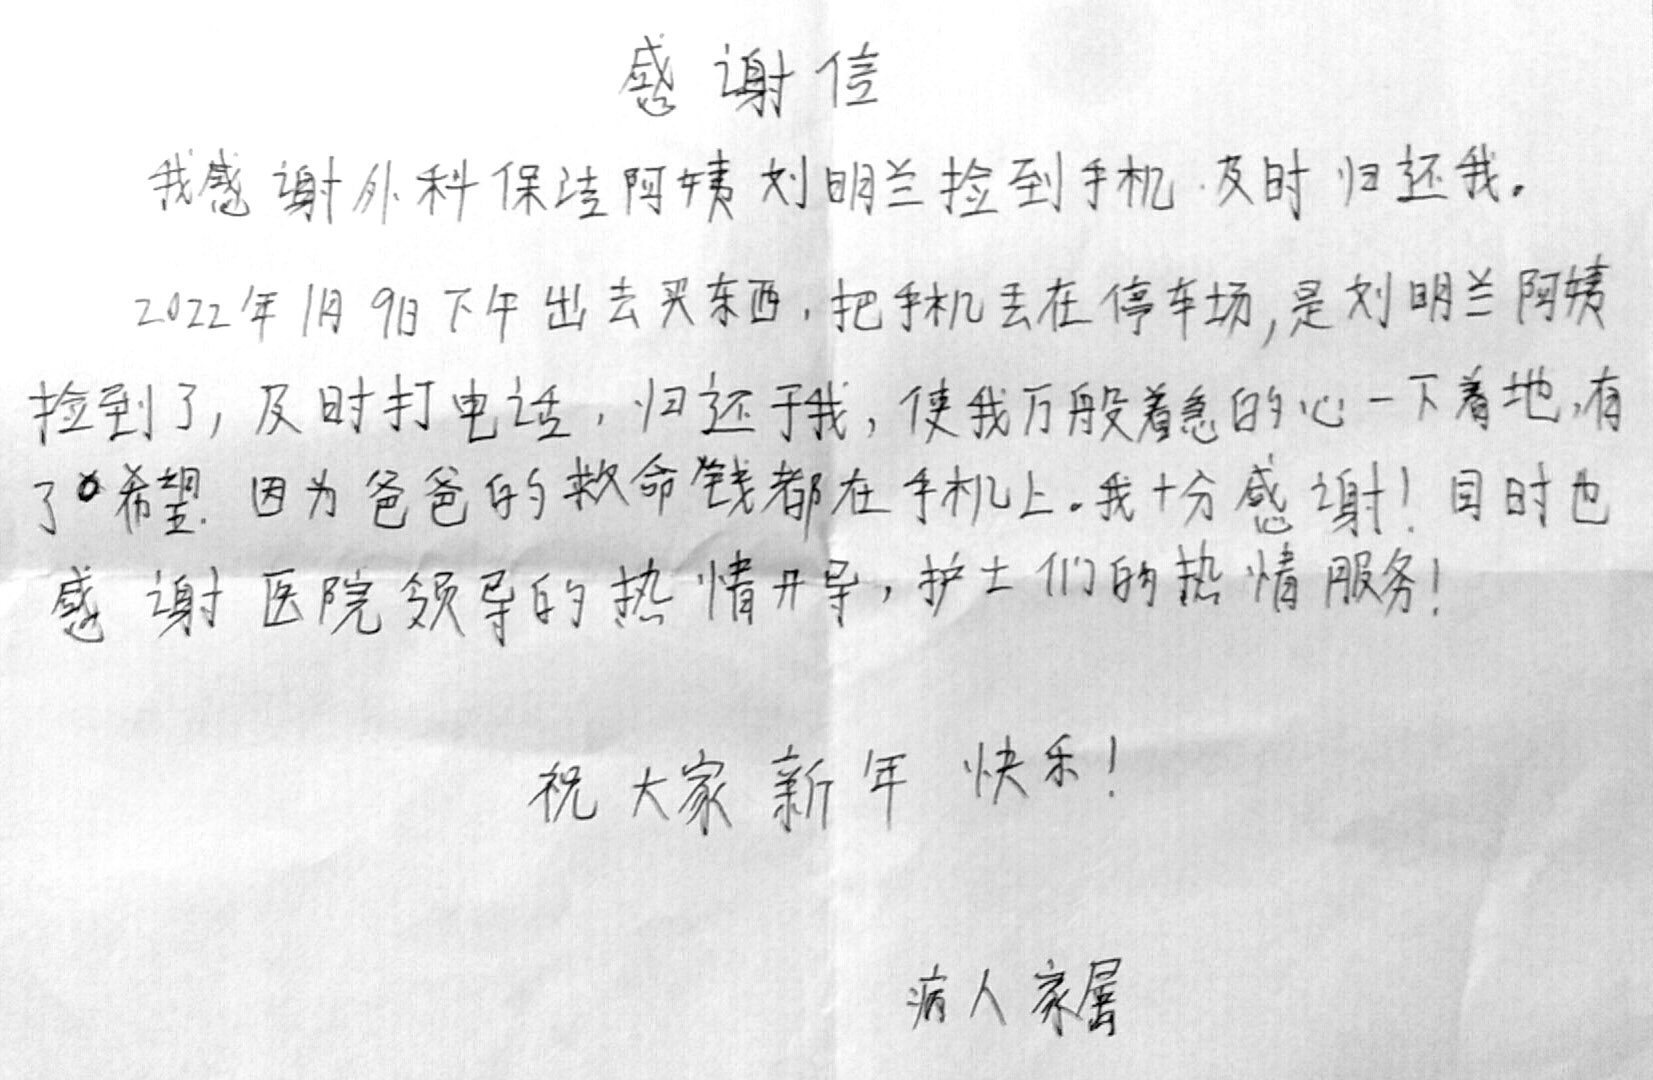 感谢信
我感谢外科保洁阿姨刘明兰捡到手机.及时归还我。
2022年1月9日下午出去买东西,把手机丢在停车场,是刘明兰阿姨
捡到了,及时打电话,归还于我,使我万般着急的心一下着地,有
了希望.因为爸爸的救命钱都在手机上。我十分感谢!同时也
感谢医院领导的热情开导,护士们的热情服务!
祝大家新年快乐!
病人家属